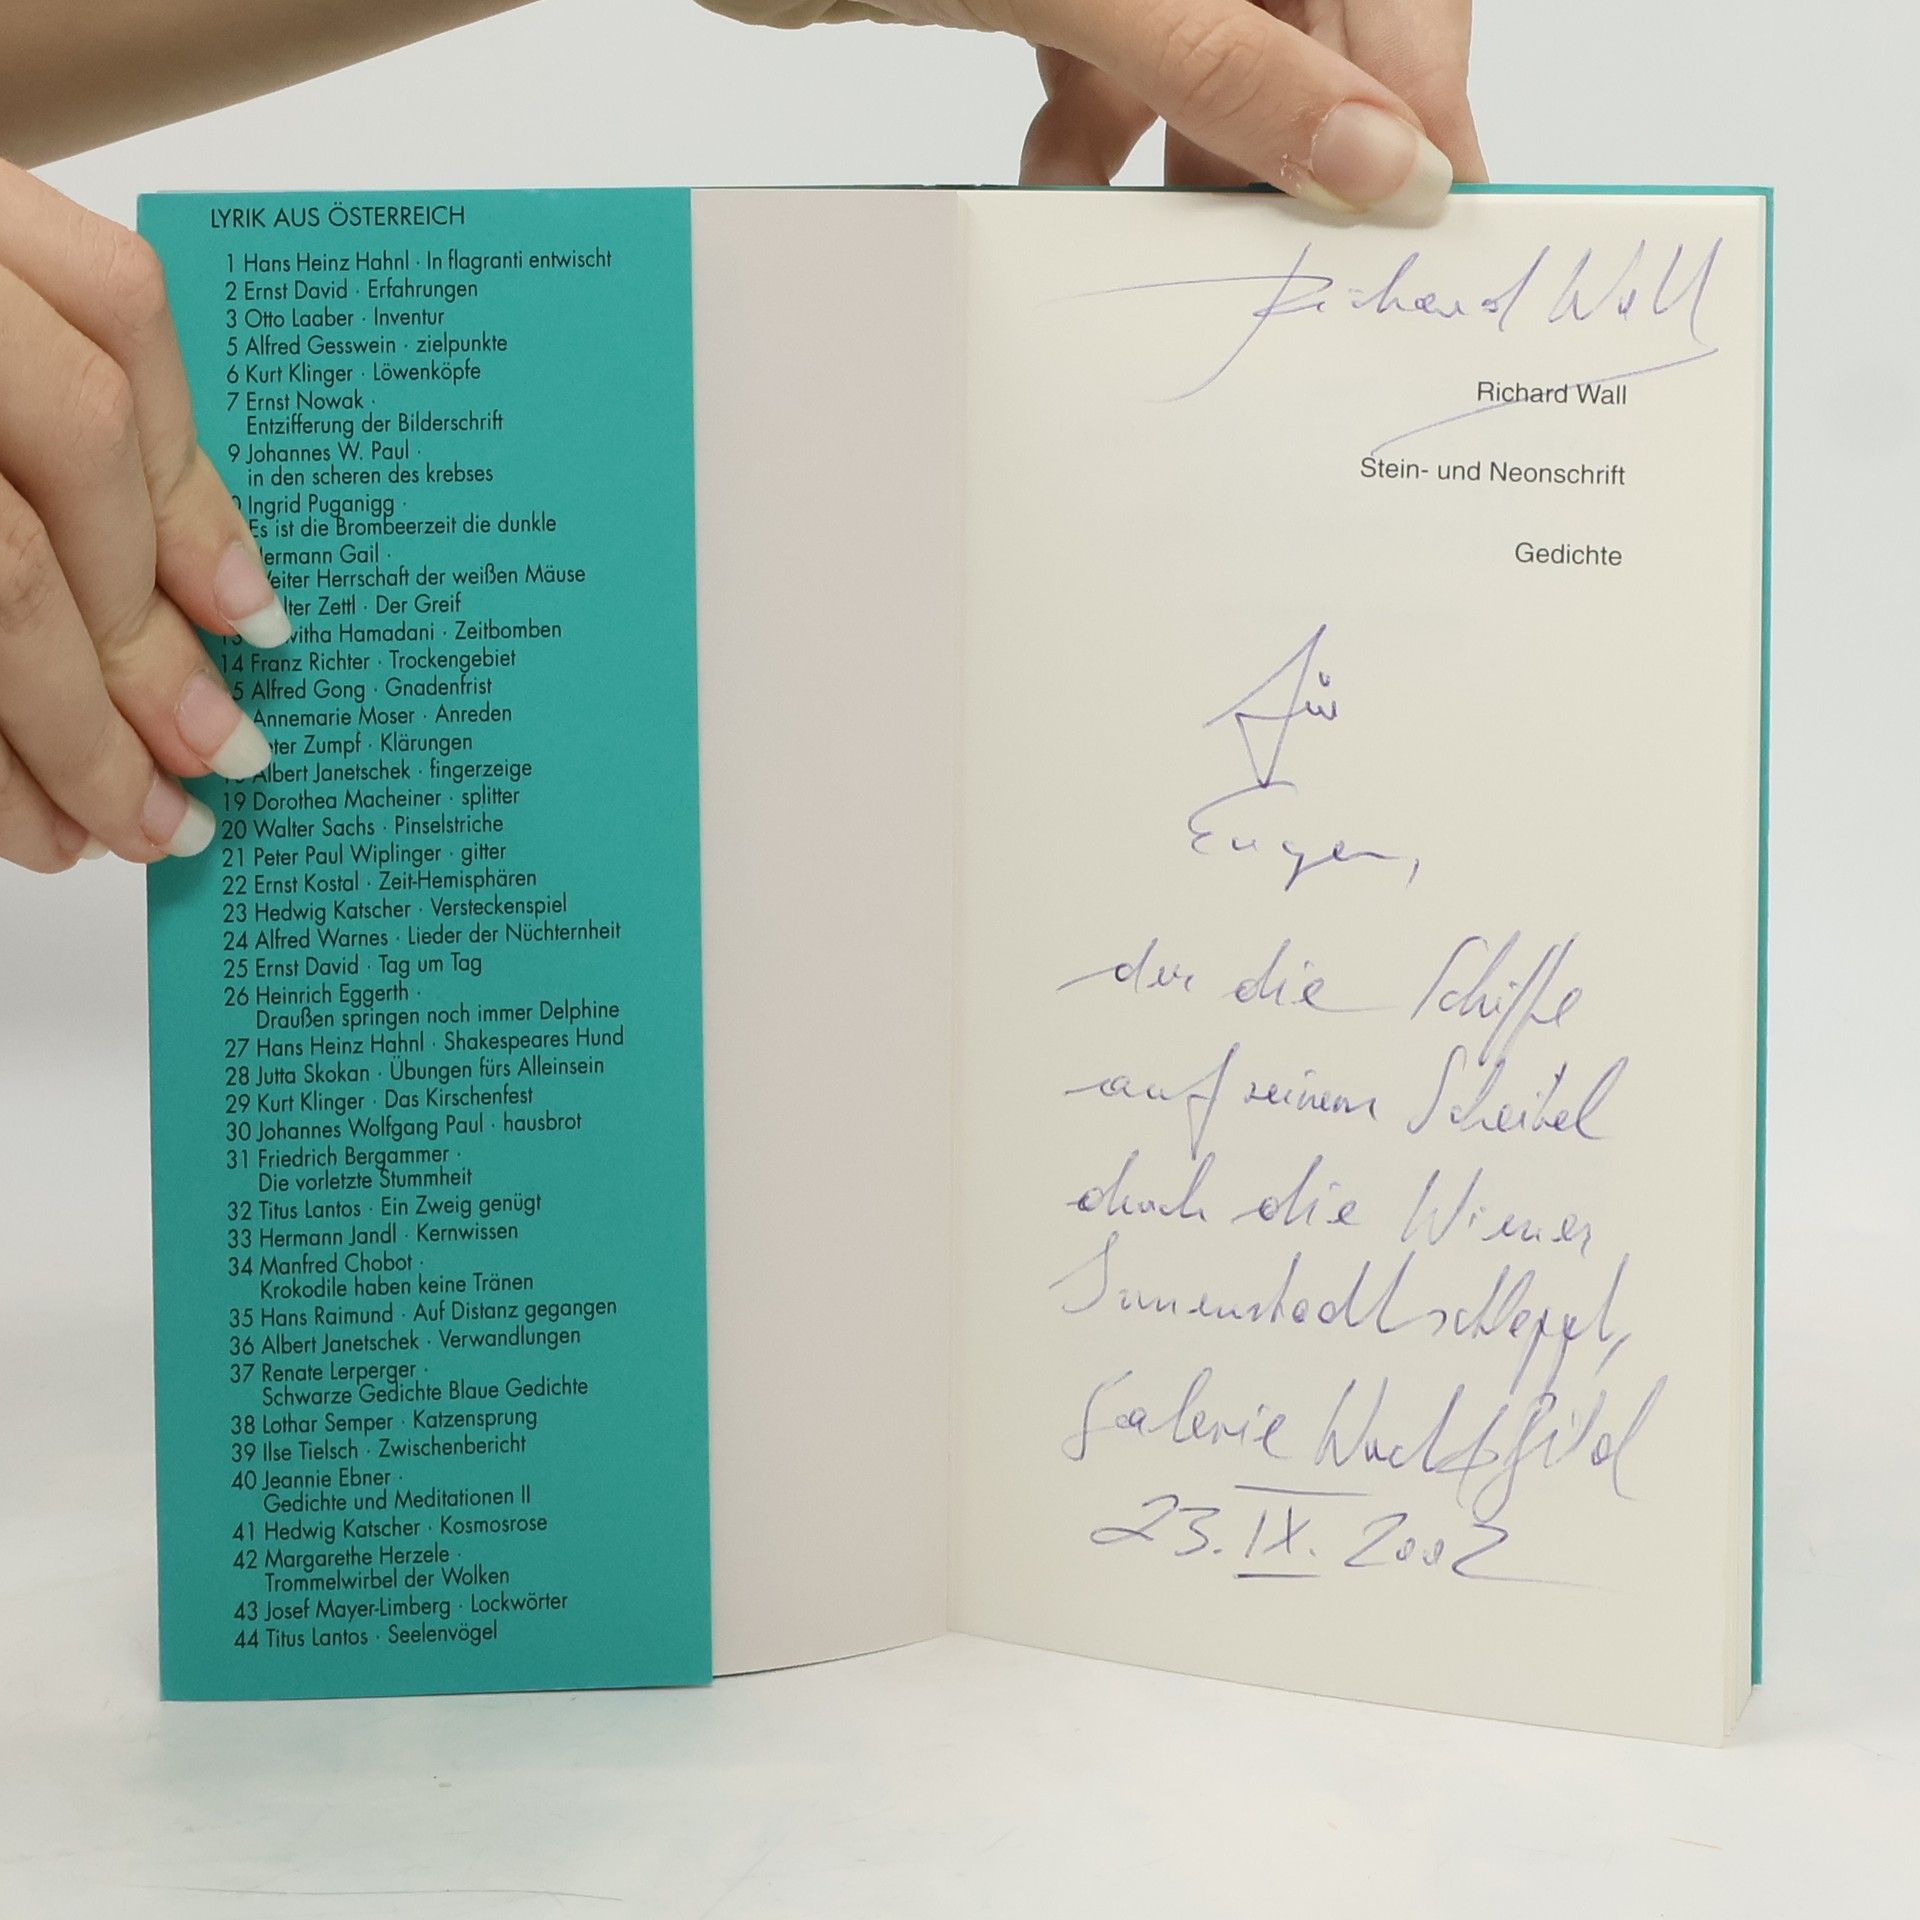 LYRIK AUS ÖSTERREICH
1 Hans Heinz Hahnl · In flagranti entwischt
2 Ernst David · Erfahrungen
3 Otto Laaber · Inventur
5 Alfred Gesswein · zielpunkte
6 Kurt Klinger · Löwenköpfe
7 Ernst Nowak ·
Entzifferung der Bilderschrift
9 Johannes W. Paul ·
in den scheren des krebses
Ingrid Puganigg ·
Es ist die Brombeerzeit die dunkle
Gail ·
Herrschaft der weißen Mäuse
Zettl · Der Greif
Hamadani · Zeitbomben
14 Franz Richter · Trockengebiet
5 Alfred Gong · Gnadenfrist
Annemarie Moser · Anreden
Zumpf · Klärungen
Albert Janetschek · fingerzeige
19 Dorothea Macheiner · splitter
20 Walter Sachs · Pinselstriche
21 Peter Paul Wiplinger · gitter
22 Ernst Kostal · Zeit-Hemisphären
23 Hedwig Katscher · Versteckenspiel
24 Alfred Warnes · Lieder der Nüchternheit
25 Ernst David · Tag um Tag
26 Heinrich Eggerth ·
Draußen springen noch immer Delphine
27 Hans Heinz Hahnl · Shakespeares Hund
28 Jutta Skokan · Übungen fürs Alleinsein
29 Kurt Klinger · Das Kirschenfest
30 Johannes Wolfgang Paul · hausbrot
31 Friedrich Bergammer ·
Die vorletzte Stummheit
32 Titus Lantos · Ein Zweig genügt
33 Hermann Jandl · Kernwissen
34 Manfred Chobot ·
Krokodile haben keine Tränen
35 Hans Raimund · Auf Distanz gegangen
36 Albert Janetschek · Verwandlungen
37 Renate Lerperger ·
Schwarze Gedichte Blaue Gedichte
38 Lothar Semper · Katzensprung
39 Ilse Tielsch · Zwischenbericht
40 Jeannie Ebner ·
Gedichte und Meditationen II
41 Hedwig Katscher · Kosmosrose
42 Margarethe Herzele ·
Trommelwirbel der Wolken
43 Josef Mayer-Limberg · Lockwörter
44 Titus Lantos · Seelenvögel
Richard Wall
Richard Wall
Stein- und Neonschrift
Gedichte
für
Eugen,
der die Schiffe
auf seinem Scheitel
durch die Wiener
Innenstadt schleppt,
Galerie
23. IX. 2002